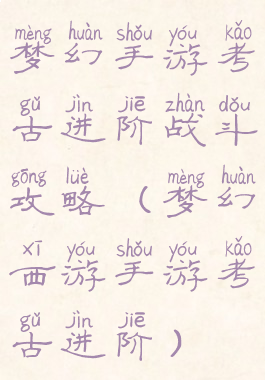 mèng huàn shǒu yóu kǎo
梦幻手游考
gǔ jìn jiē zhàn dǒu
古进阶战斗
gōng lüè mèng huàn
攻略（梦幻
xī yóu shǒu yóu kǎo
西游手游考
gǔ jìn jiē
古进阶）